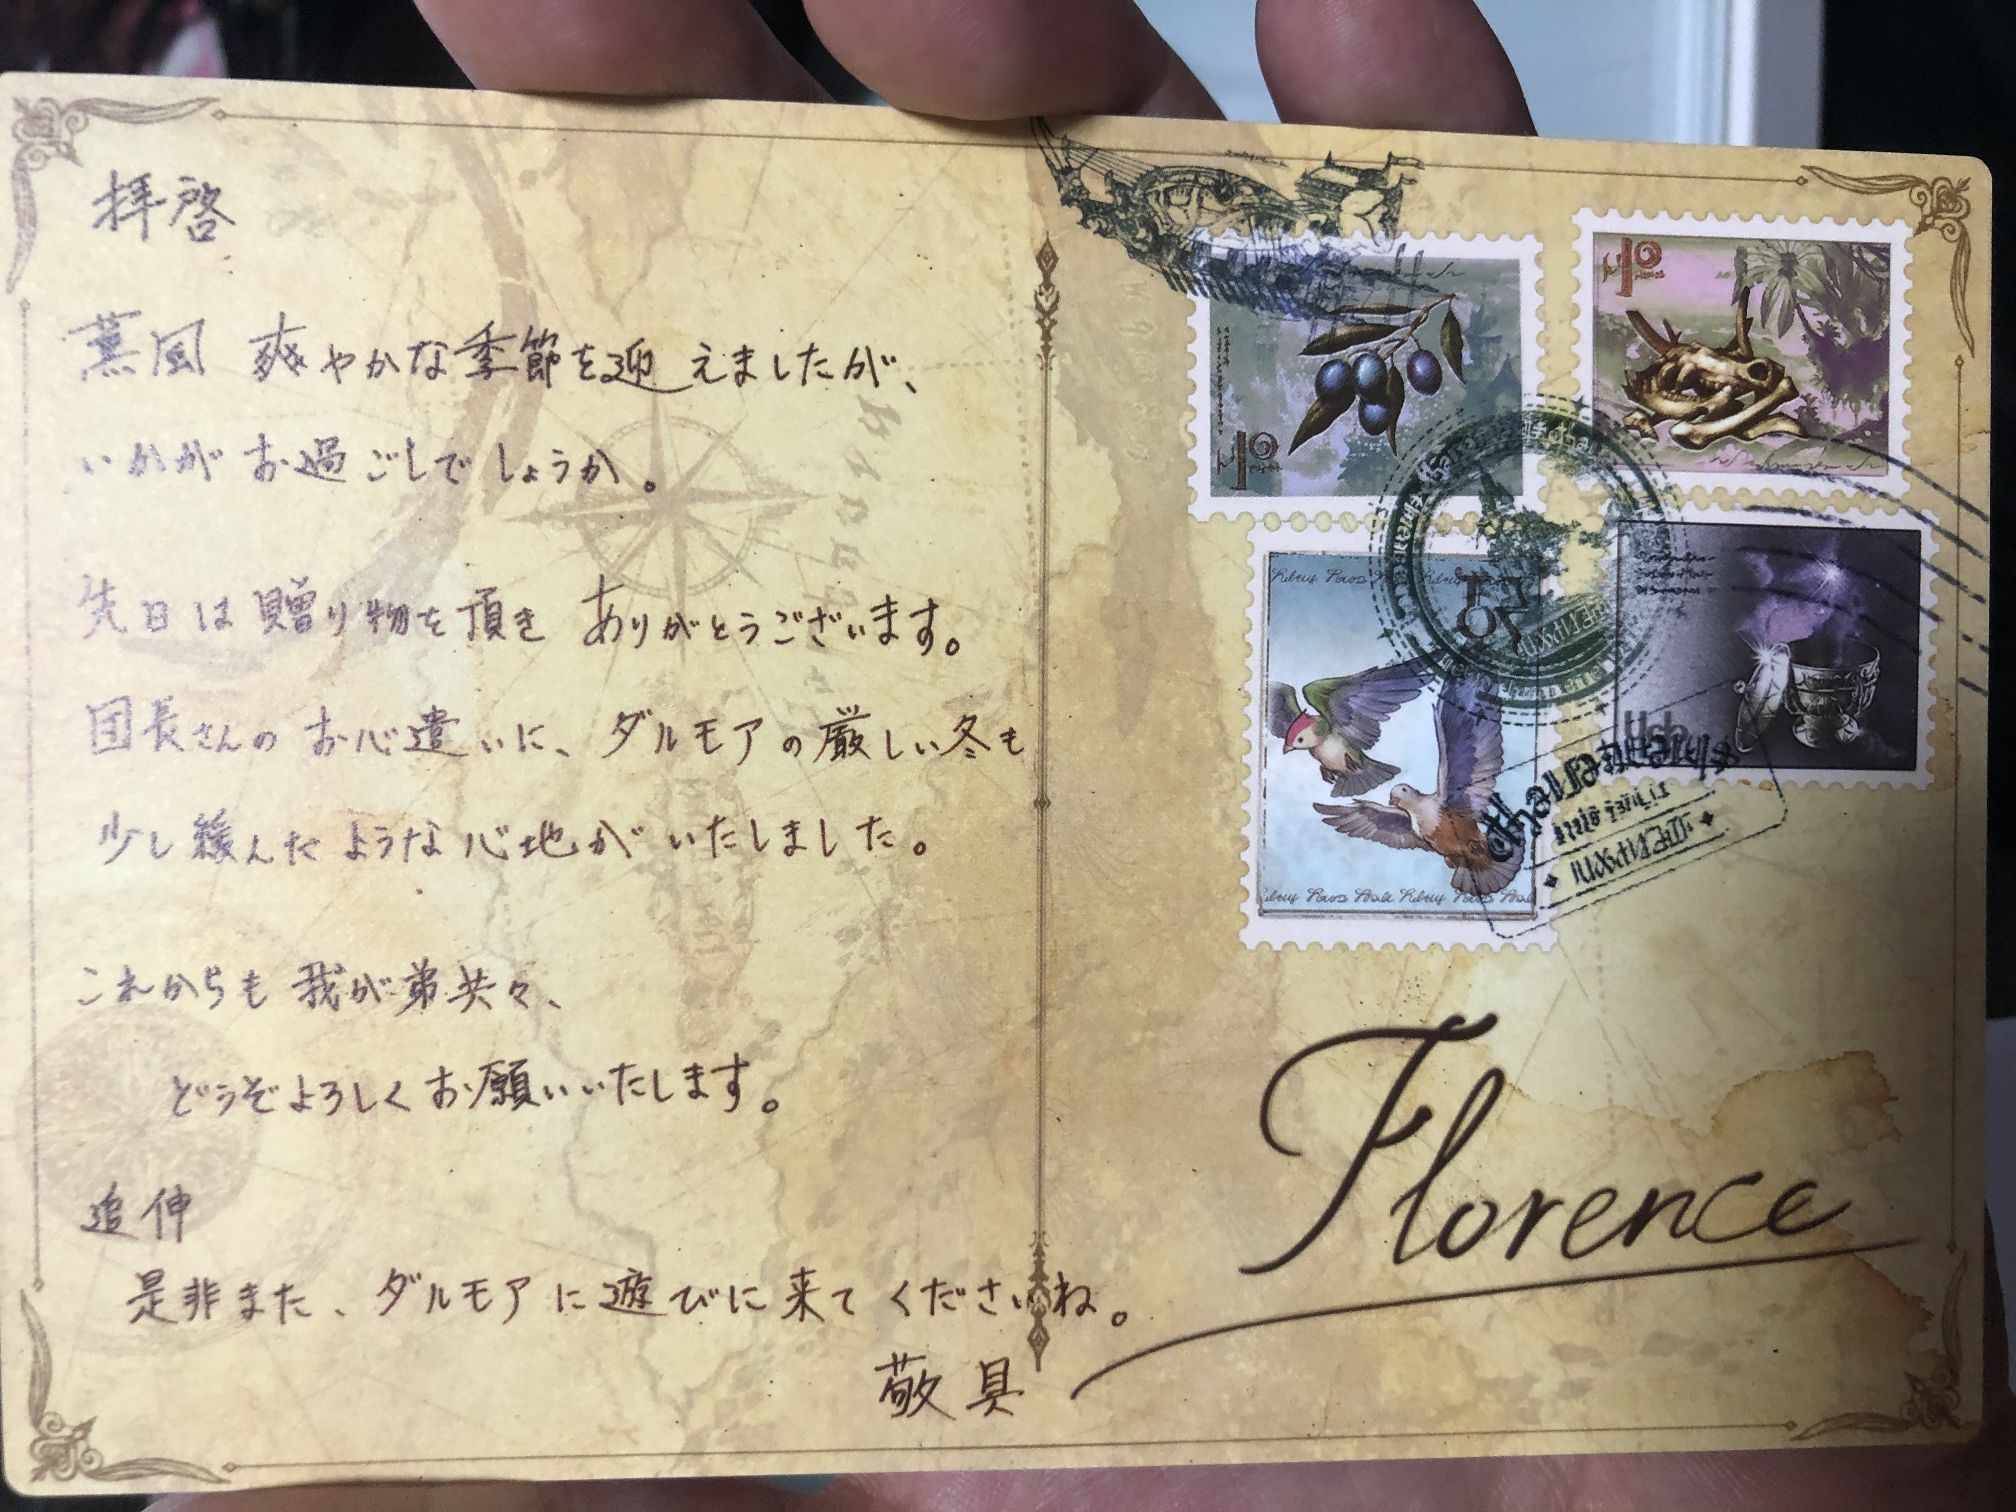 拝啓
薫風 爽やかな季節を迎えましたが、
いかがお過ごしでしょうか。
先日は贈り物を頂き ありがとうございます。
団長さんのお心遣いに、ダルモアの厳しい冬も
少し緩んだような心地がいたしました。
これからも我が弟共々、
どうぞよろしくお願いいたします。
追伸
是非また、ダルモアに遊びに来てくださいね。
敬具
Florence